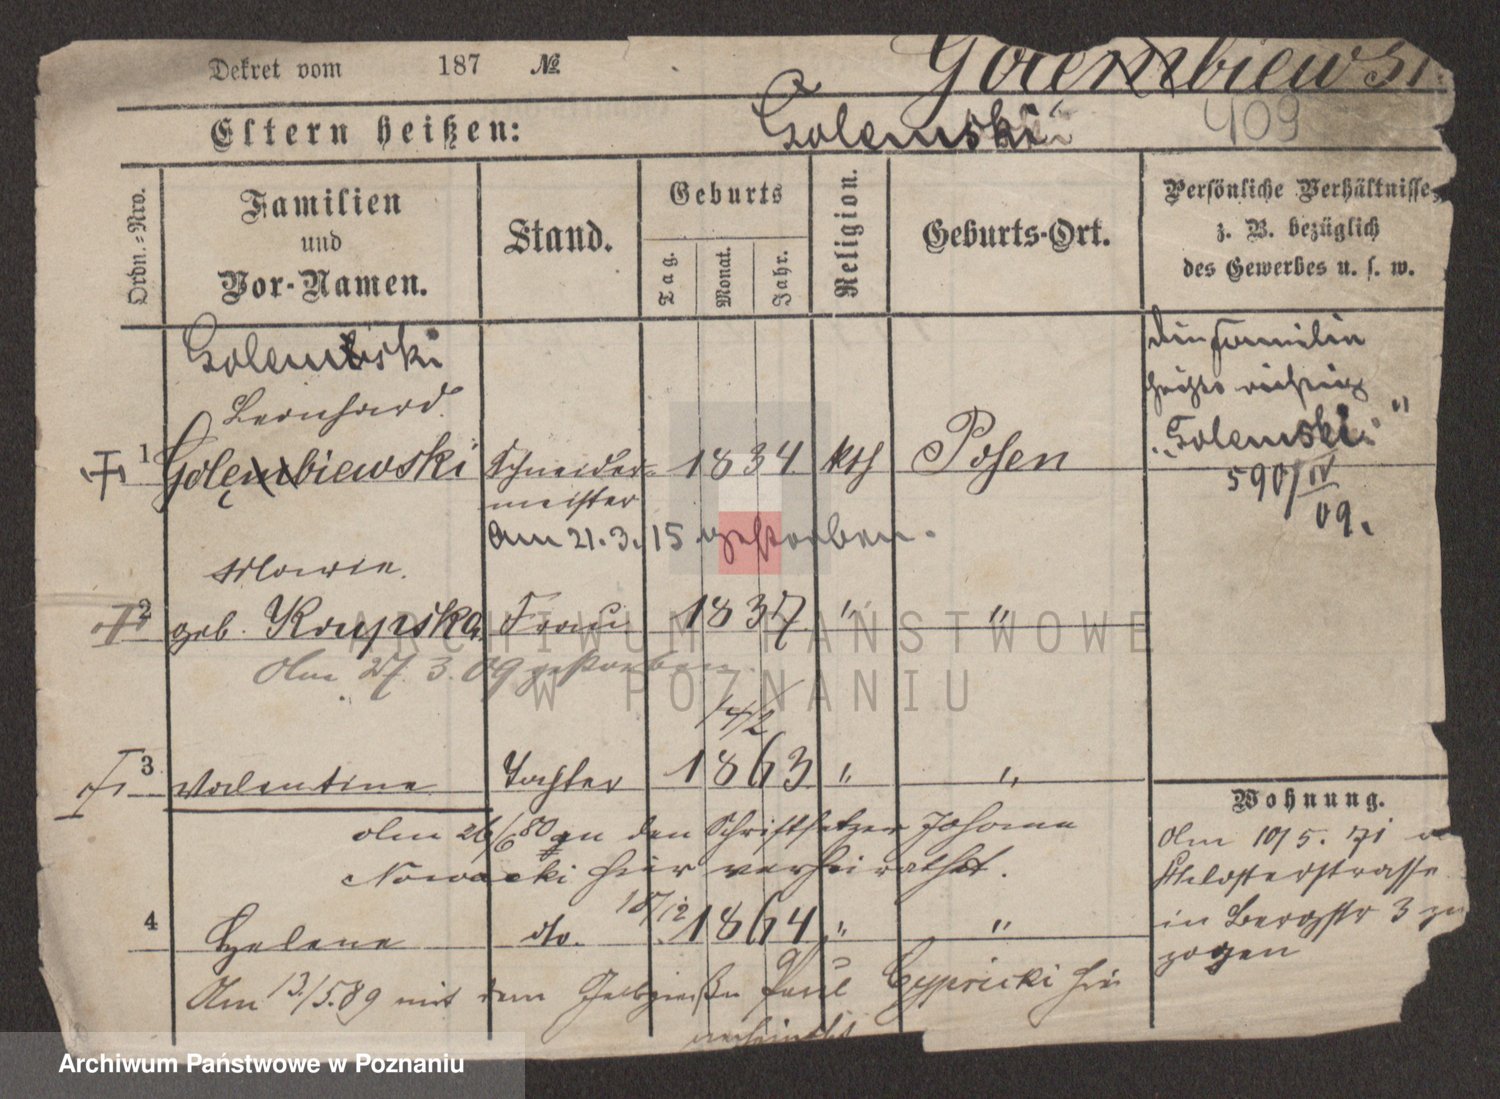 Dekret vom 187 №
Golembiewski
Eltern heißen: Golemski 409
Ordn.=Nro.
Familien
und
Vor-Namen.
Stand.
Geburts
Tag.
Monat.
Jahr.
Religion.
Geburts-Ort.
Persönliche Verhältnisse,
z. B. bezüglich
des Gewerbes u. s. w.
Golemski
Leonhard
1 Golembiewski Schneider= 1834 kth Posen
meister
Am 21.3.15 gestorben.
Die Familie
heißt richtig
"Golemski"
590/IV
09.
Marie.
2 geb. Krupska Frau 1837 " "
Am 27.3.09 gestorben.
14/2
3 Valentine Tochter 1863 " "
Am 26/6 80 an den Schriftsetzer Johann
Nowacki hier verheirathet.
4 Helene do. 18/12 1864 " "
Am 13/5.89 mit dem Gelbgießer Paul Cypricki hier
verheirathet
Wohnung.
Am 10/5.71 v
Klosterstrasse
in Bergstr 3 zu
zogen
ARCHIWUM PAŃSTWOWE
W POZNANIU
Archiwum Państwowe w Poznaniu